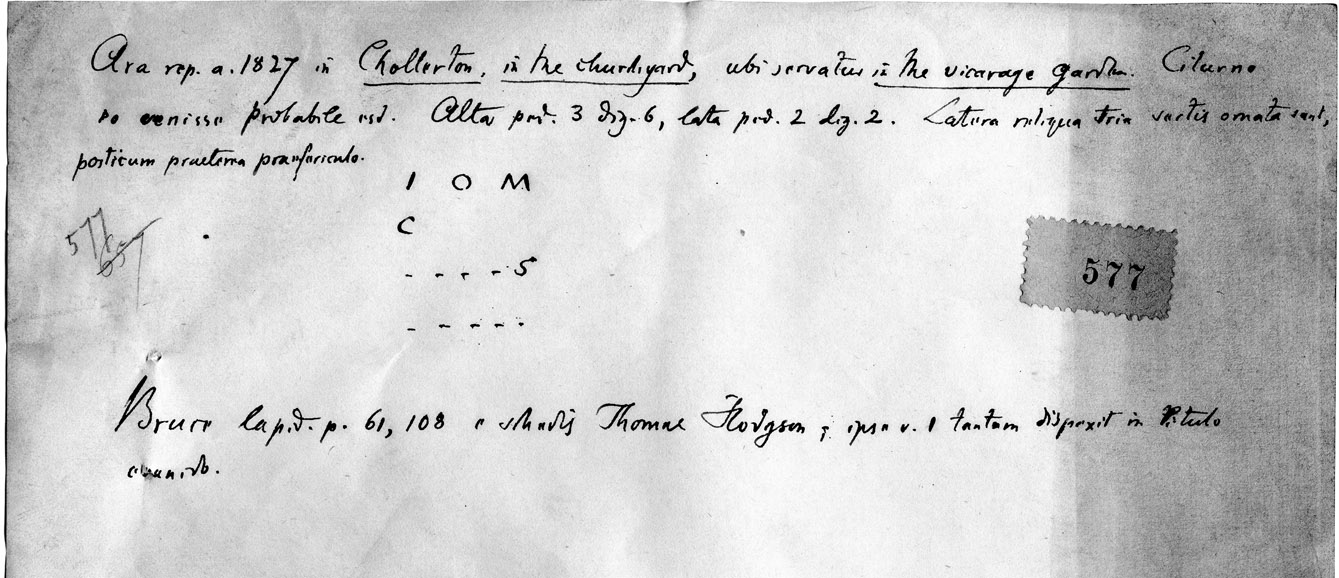 Ara rep. a. 1827 in Chollerton, in the churchyard, ubi servatur in the vicarage garden. Cilurno
eo venisse probabile est. Alta ped. 3 dig. 6, lata ped. 2 dig. 2. Latera reliqua tria sertis ornata sunt,
posticum praeterea praefericulo.
I O M
C
577
- - - - S
577
- - - - -
Bruce lapid. p. 61, 108 e schedis Thomae Hodgson ; ipse v. 1 tantum dispexit in titulo
evanido.